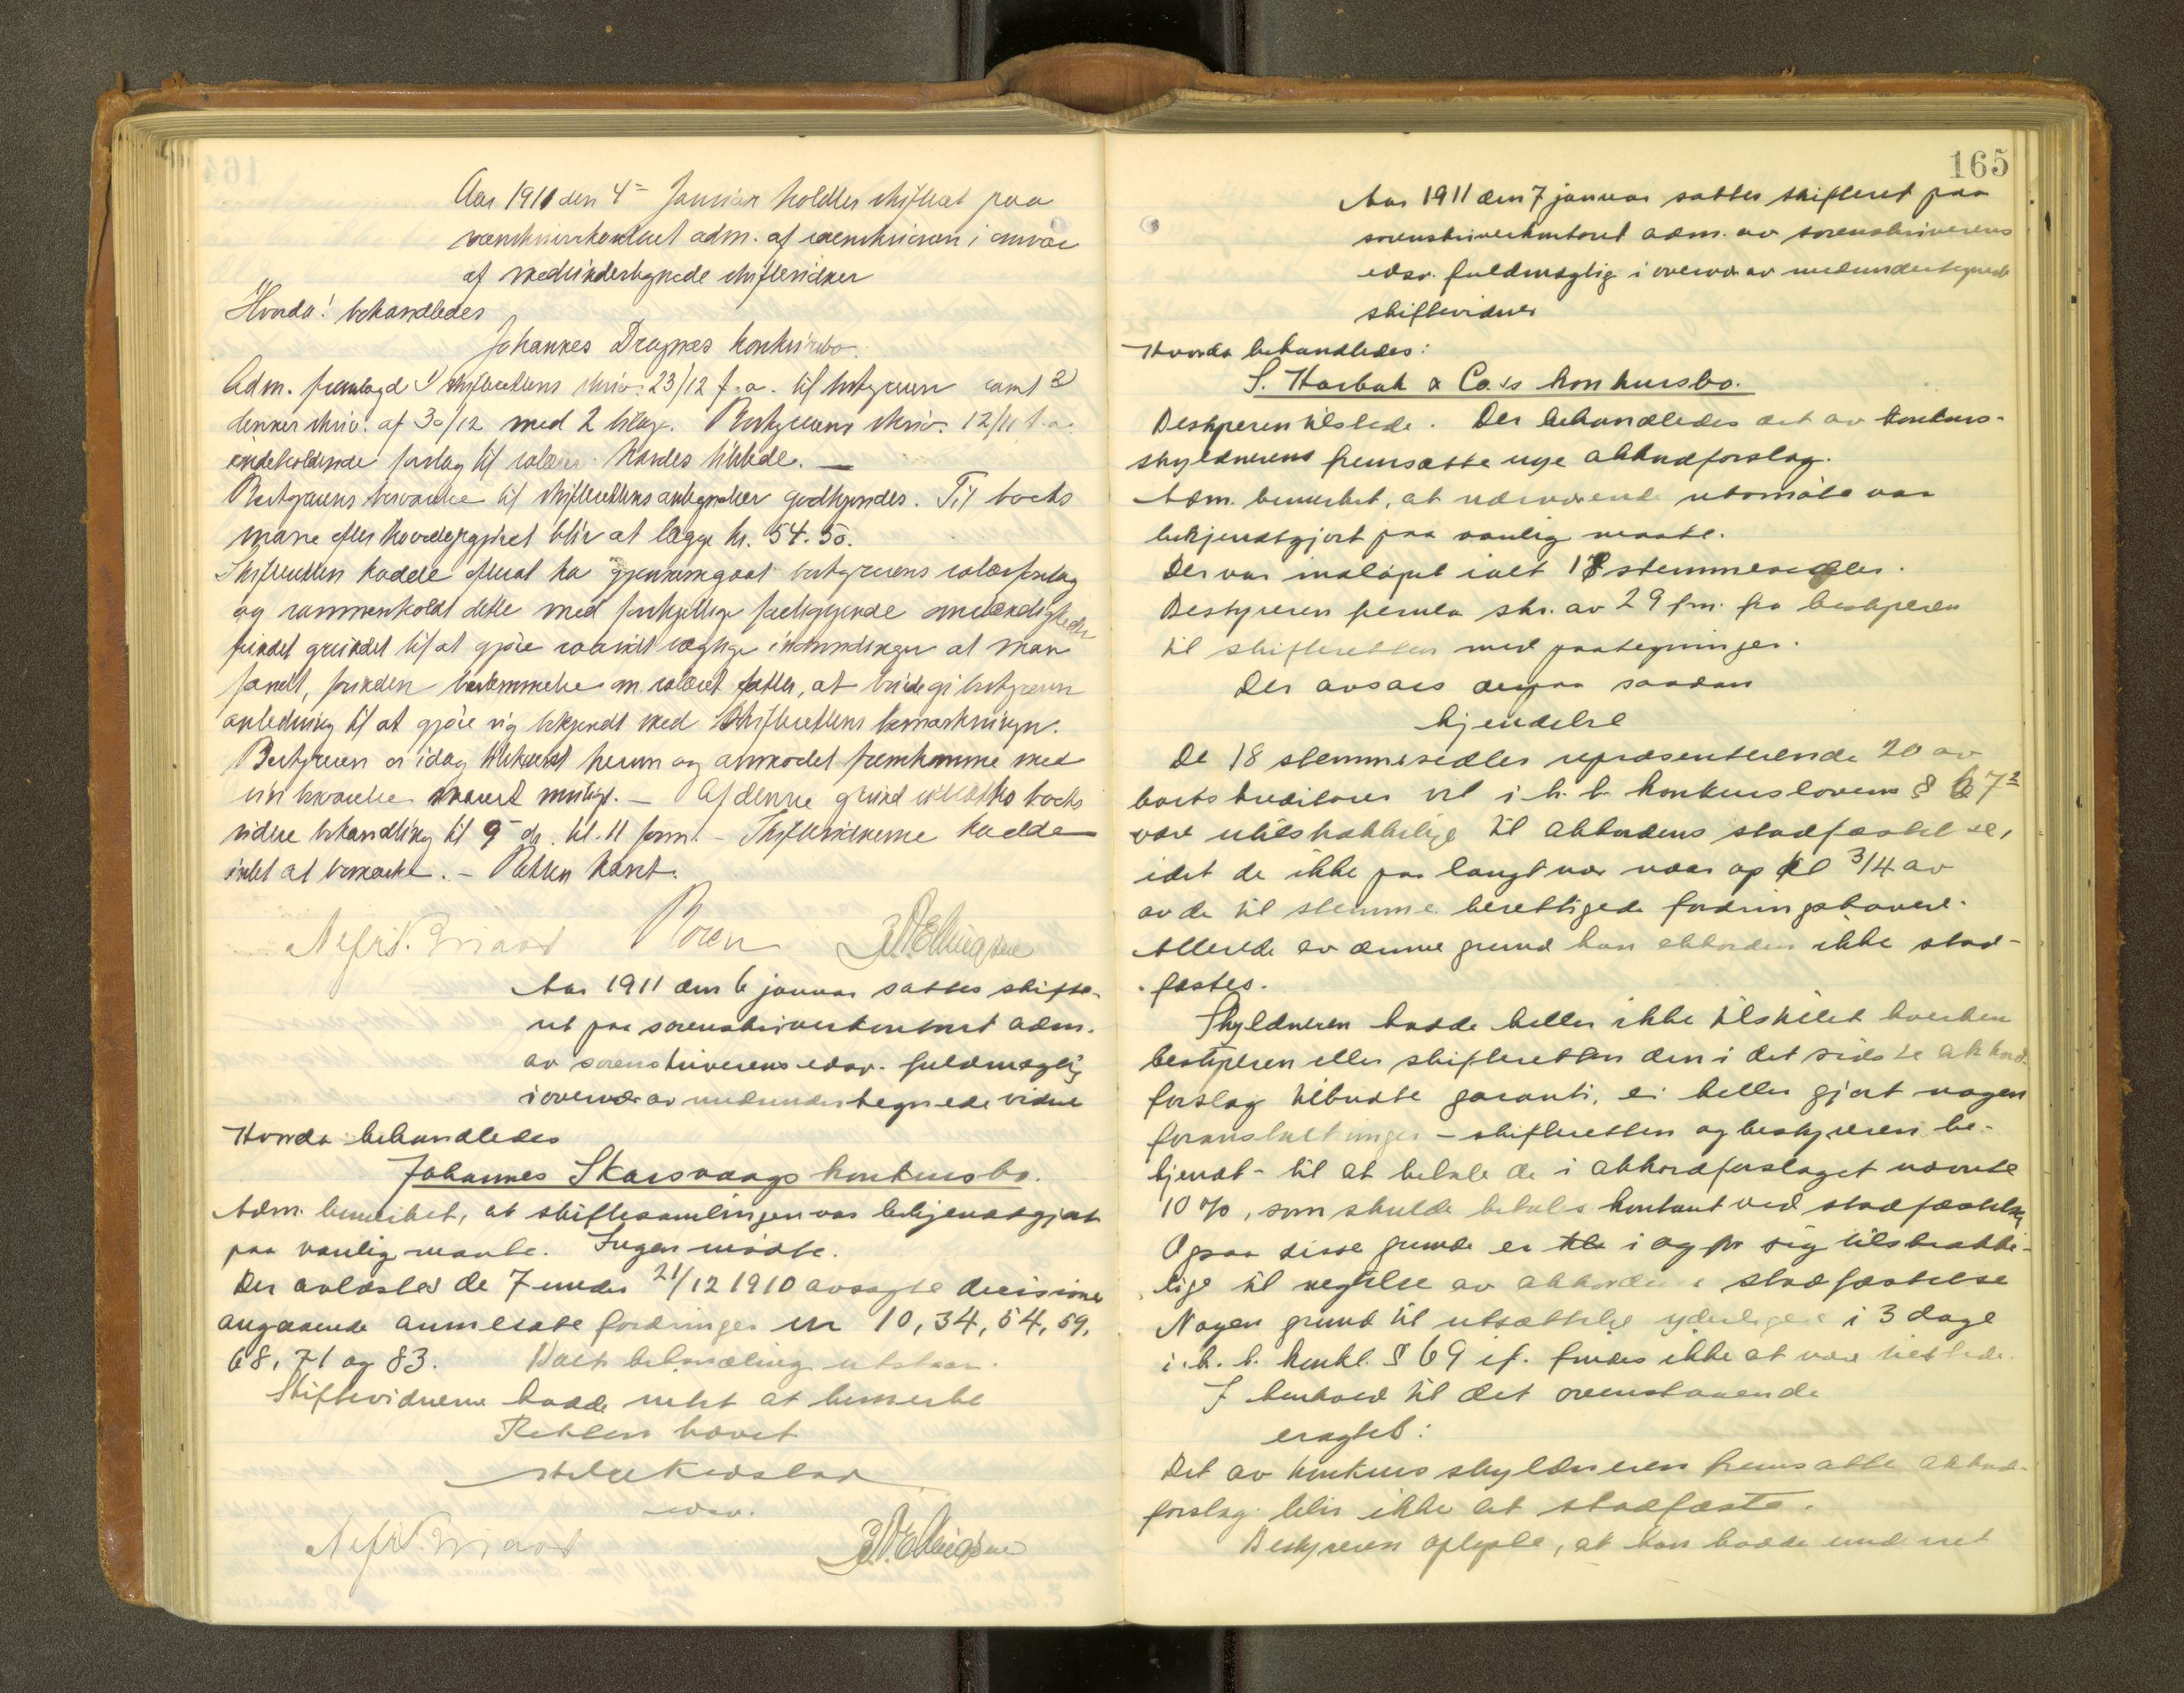 Aar 1911 den 4de Januar holdtes skifteret paa
sorenskriverkontoret adm. af sorenskriveren i overvær
af medundertegnede skiftevidner
Hvorda! behandledes
Johannes Dragnes konkursbo.
Adm. fremlagde 1) skifterettens skriv. 23/12 f.a. til bestyreren samt 2)
dennes skriv. af 30/12 med 2 bilag. Bestyrerens skriv. 12/11 f.a.
indeholdende forslag til salær havdes tilstede. —
Bestyrerens besvarelse til skifterettens antegnelser godkjendes. Til boets
masse efter hovedopgjøret blir at lægge kr. 54.50.
Skifteretten hadde efterat ha gjennemgaat bestyrerens salærforslag
og sammenholdt dette med forskjellige foreliggende omstændigheder
fundet grundet til at gjøre saavidt vægtige indvendinger at man
fandt, forinden bestemmelse om salæret fattes, at burde gi bestyreren
anledning til at gjøre sig bekjendt med skifterettens bemærkninger.
Bestyreren er idag tilskrevet herom og anmodet fremkomme med
sin besvarelse snarest muligt. — Af denne grund utsattes boets
videre behandling til 9de ds. kl. 11 form. — Skiftevidnerne hadde
intet at bemærke. — Retten hævet.
Boren
Aar 1911 den 6 januar sattes skifte-
ret paa sorenskriverkontoret adm.
av sorenskriverens edsv. fuldmægtig
i overvær av medundertegnede vidne
Hvorda behandledes
Johannes Skarsvaags konkursbo.
Adm. bemerket, at skiftesamlingen var bekjendtgjort
paa vanlig maate. Ingen mødte.
Der avlæstes de 7 under 21/12 1910 avsagte decisioner
angaaende anmeldte fordringer nr 10, 34, 54, 59,
68, 71 og 83. Boets behandling utstaar.
Skiftevidnerne hadde intet at bemerke
Retten hævet
edsv.
165
Aar 1911 den 7 januar sattes skifteret paa
sorenskriverkontoret adm. av sorenskriverens
edsv. fuldmægtig i overvær av medundertegnede
skiftevidner
Hvorda behandledes:
S. Harbak & Co.s konkursbo.
Bestyreren tilstede. Der behandledes det av konkurs-
skyldnerens fremsatte nye akkordforslag.
Adm. bemerket, at nærværende utemøte var
bekjendtgjort paa vanlig maate.
Der var indløpet ialt 18 stemmesedler.
Bestyreren fremla skr. av 29 f.m. fra bestyreren
til skifteretten med paategninger.
Der avsaes derpaa saadan
kjendelse
De 18 stemmesedler repræsenterende 20 av
boets kreditorer vil i h. t. konkurslovens § 67²
være utilstrækkelige til akkordens stadfæstelse,
idet de ikke paa langt nær naar op til 3/4 av
av de til stemme berettigede fordringshavere.
Allerede av denne grund kan akkorden ikke stad-
fæstes.
Skyldneren hadde heller ikke tilstillet hverken
bestyreren eller skifteretten den i det sidste akkord-
forslag tilbudte garanti, ei heller gjort nogen
foranstaltninger – skifteretten og bestyreren be-
kjendt – til at betale de i akkordforslaget nævnte
10 %, som skulde betales kontant ved stadfæstelsen
Ogsaa disse grunde er i og for sig tilstrække-
lige til negtelse av akkordens stadfæstelse
Nogen grund til utsættelse yderligere i 3 dage
i. h. t. konkl. § 69 jf. findes ikke at være tilstede.
I henhold til det ovenstaaende
eragtes:
Det av konkursskyldneren fremsatte akkord-
forslag blir ikke at stadfæste.
Bestyreren oplyste, at han hadde under ret